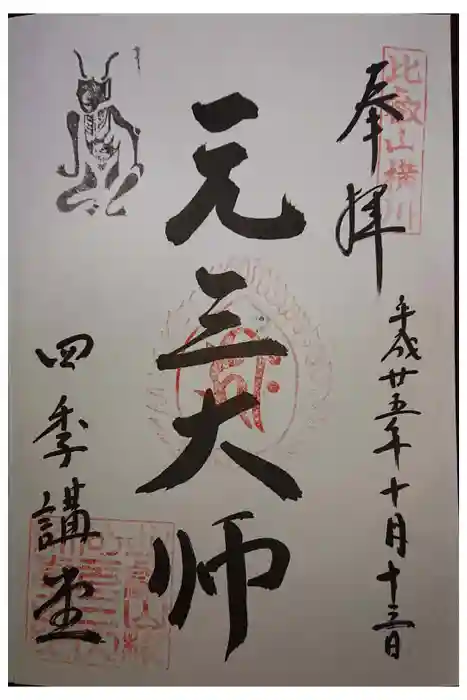 比叡山横川
奉拝
平成廿五年十月十三日
元三大师
四季講堂